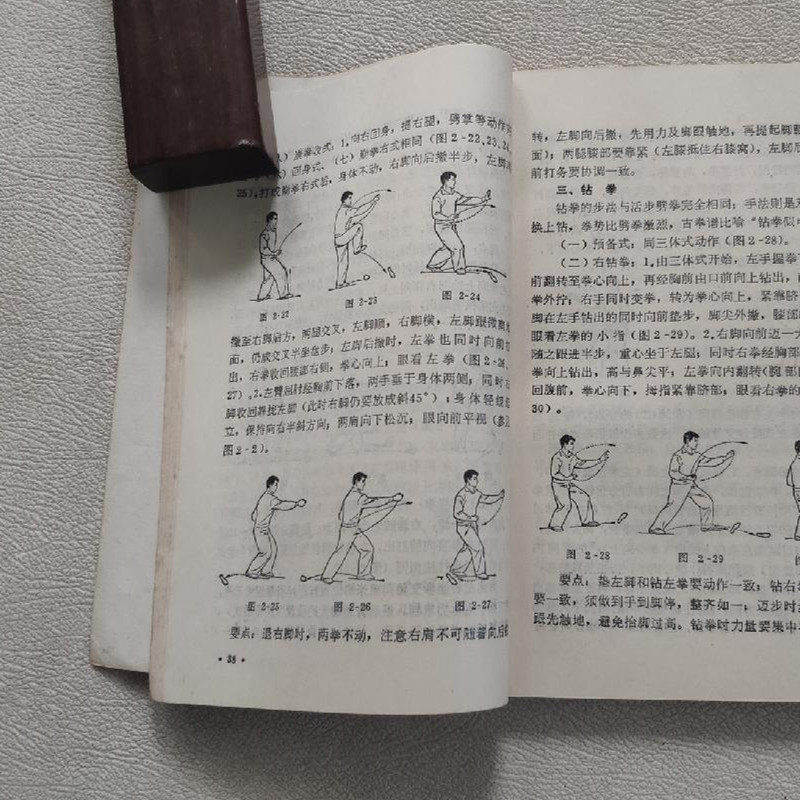 崩拳左式：1.向右回身，提右腿，劈掌等动作
回身式（七）崩拳右式相同（图2-22,23,24,
25）。打成崩拳右式后，身体不动，右脚向后撤半步，左脚
图 2-22
图 2-23
图 2-24
撤至右脚后方，两腿交叉，左脚顺，右脚横，左脚跟微离地
面，仍成交叉半坐盘步；左脚后撤时，左拳也同时向前
出，右拳收回腰部右侧，拳心向上；眼看左拳（图2-26、
27）。2.左臂屈肘经胸前下落，两手垂于身体两侧；同时
脚收回靠拢左脚（此时右脚仍要放成斜45°）；身体轻缓起
立，保持向右半斜方向；两肩向下松沉；眼向前平视（参
图2-2）。
图 2-25
图 2-26
图 2-27
要点：退右脚时，两拳不动，注意右肩不可随着向后
·38·
转，左脚向后撤，先用力及脚跟触地，再提起脚
面），两腿膝部要靠紧（左膝抵住右膝窝），左脚
前打务要协调一致。
三、钻 拳
钻拳的步法与活步劈拳完全相同；手法则是
换上钻，拳势比劈拳激烈，古拳谱比喻“钻拳似
（一）预备式：同三体式动作（图2-28）。
（二）右钻拳：1.由三体式开始，左手握拳
前翻转至拳心向上，再经胸前由口前向上钻出，
拳外拧；右手同时变拳，转为拳心向上，紧靠脐
脚在左手钻出的同时向前垫步，脚尖外撇，膝部
眼看左拳的小指（图2-29）。2.右脚向前迈一
随之跟进半步，重心坐于左腿；同时右拳经胸部
拳向上钻出，高与鼻尖平；左拳向内翻转（腕部
回腹前，拳心向下，拇指紧靠脐部；眼看右拳的
30）。
图 2-28
图 2-29
图
要点：垫左脚和钻左拳要动作一致；钻右
要一致，须做到手到脚停，整齐如一；迈步时
跟先触地，避免抬脚过高。钻拳时力量要集中